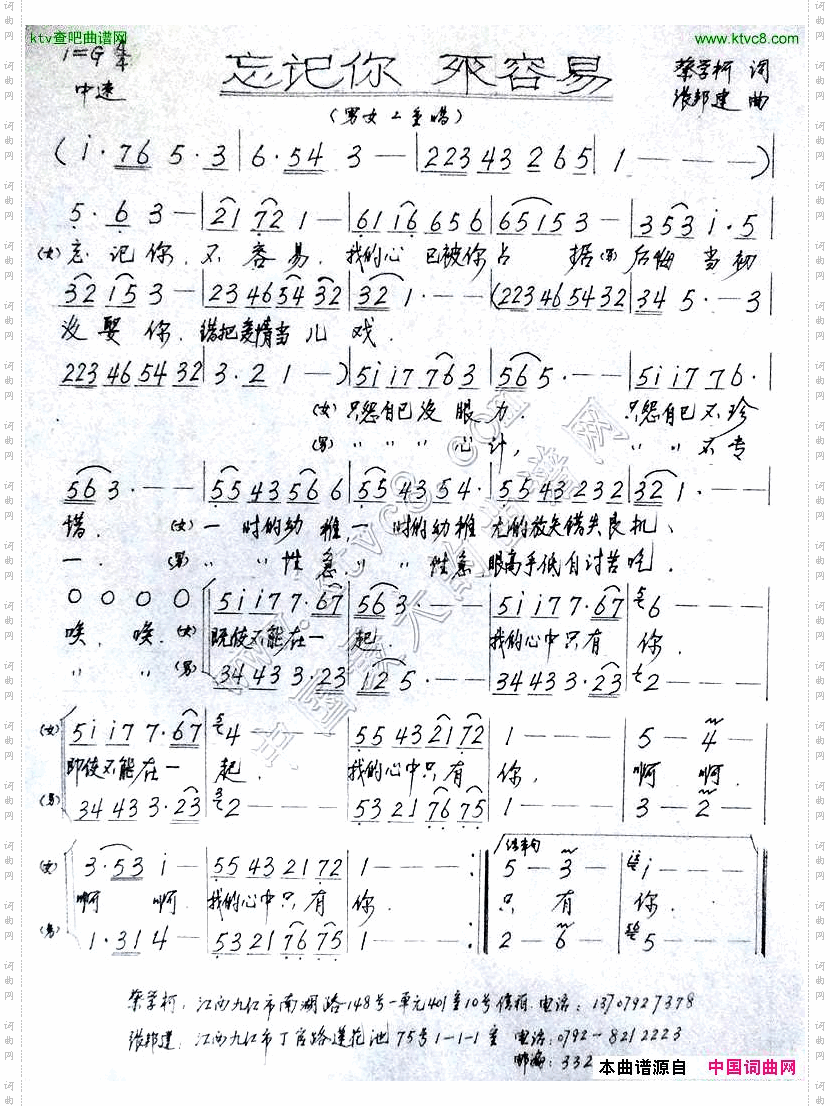 ktv查吧曲谱网 www.ktvc8.com
1=G 4/4
忘记你 不容易
蔡学柯 词
中速
张邦建 曲
(男女二重唱)
(i·76 5·3|6·54 3—|223 43 2 6 5|1———)
5·6 3—|21 72 1—|61 i6 656|65 15 3—|353 i·5
(女)忘记你,不容易,我的心已被你占据(男)后悔当初
32 15 3—|23 4654 32|32 1·——|(223 46 54 32|34 5·—3
没娶你,错把爱情当儿戏.
223 46 54 32|3·2 1—)|5ii7 763|565·——|5ii7 76·
(女)只怨自己没眼力. 只怨自己不珍
(男)〃〃〃心计, 〃〃不专
563·——|55 43 56 6|55 43 54·|55 43 232|321·——
惜. (女)一时的幼稚,一时的幼稚 错失良机、
一. (男)〃〃性急〃〃性急 眼高手低自讨苦吃.
0 0 0 0|5ii7 7·67|563·——|5ii7 7·67|6———
唉,唉.(女)既使不能在一起. 我的心中只有你.
〃〃(男)34 43 3·23|125·——|34 43 3·23|2———
(女)5ii7 7·67|4———|55 43 21 72|1———|5—4—
即使不能在一起. 我的心中只有你, 啊啊.
(男)34 43 3·23|2———|53 21 76 75|1———|3—2—
结束句
(女)3·53 i—|55 43 21 72|1———:‖5—3—|i———
啊啊.我的心中只有你. 只有你.
(男)1·31 4—|53 21 76 75|1———:‖2—6—|5———
蔡学柯:江西九江市南湖路148号一单元401室10号信箱.电话:13707927378
张邦建:江西九江市丁官路莲花池75号1-1-1室 电话:0792-8212223
邮编:332
本曲谱源自 中国词曲网